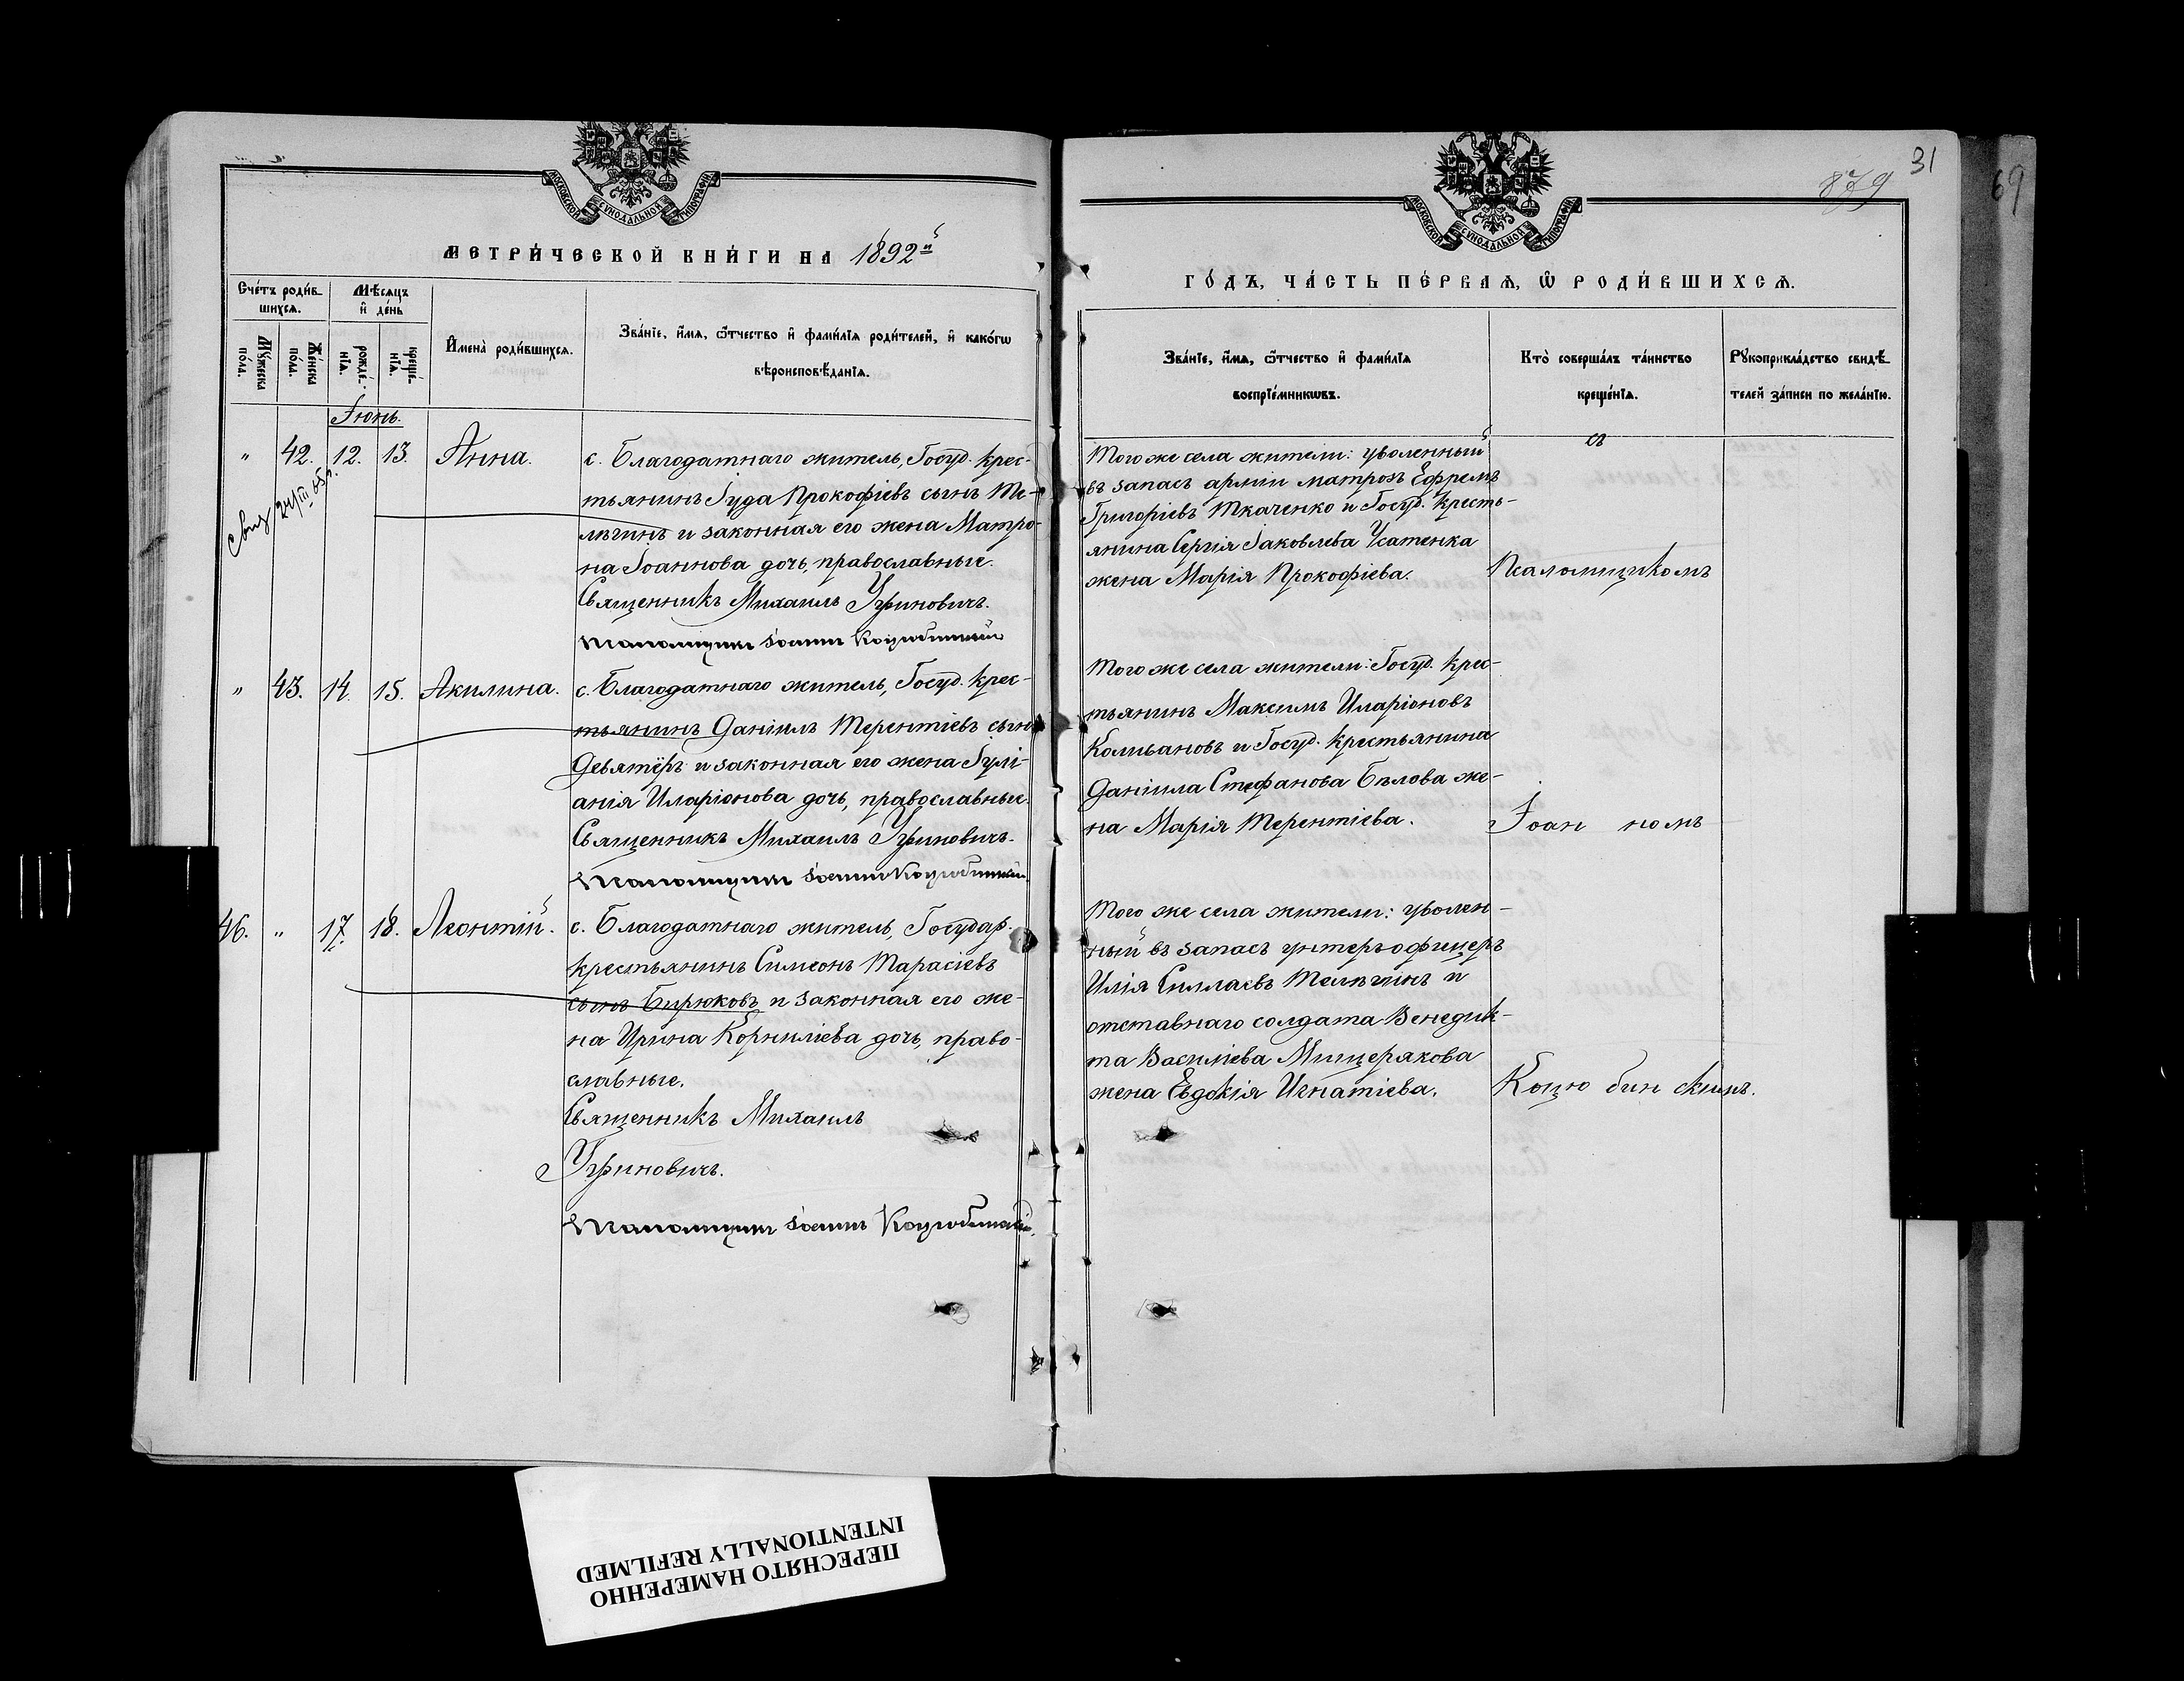 МОСКОВСКОЙ СУНОДАЛЬНОЙ ТИПОГРАФІИ
МЕТРИ́ЧЕСКОЙ КНИ́ГИ НА 1892й
Сче́тъ роди́в-
шихсѧ.
Мѣ́сѧцъ
и҆ де́нь
Мꙋ́жеска
по́ла.
Же́нска
по́ла.
рожде́-
нїѧ.
креще́-
нїѧ.
И҆мена̀ роди́вшихсѧ.
Зва́нїе, и҆́мѧ, ѻ҆́тчество и҆ фами́лїѧ роди́телей, и҆ како́гѡ
вѣроисповѣ́данїѧ.
Іюнь.
" 42. 12. 13. Анна.
с. Благодатнаго житель, Госуд. крес-
тьянинъ Іуда Прокофіевъ сынъ Те-
лѣгинъ и законная его жена Матро-
на Іоаннова дочь, православные.
Священникъ Михаилъ Уфиновичъ.
Псаломщикъ Іоаннъ Коцюбинскій
свид 24/III 05 г.
" 43. 14. 15. Акилина.
с. Благодатнаго житель, Госуд. крес-
тьянинъ Даніилъ Терентіевъ сынъ
Девятёръ и законная его жена Іулі-
анія Иларіонова дочь, православные.
Священникъ Михаилъ Уфиновичъ.
Псаломщикъ Іоаннъ Коцюбинскій
46. " 17. 18. Леонтій.
с. Благодатнаго житель, Государ.
крестьянинъ Симеонъ Тарасіевъ
сынъ Бирюковъ и законная его же-
на Ирина Корниліева дочь, право-
славные.
Священникъ Михаилъ
Уфиновичъ.
Псаломщикъ Іоаннъ Коцюбинскій.
879
31
69
МОСКОВСКОЙ СУНОДАЛЬНОЙ ТИПОГРАФІИ
ГО́ДЪ, ЧА́СТЬ ПЕ́РВАѦ, Ѡ҆ РОДИ́ВШИХСѦ.
Зва́нїе, и҆́мѧ, ѻ҆́тчество и҆ фами́лїѧ
воспрїе́мникѡвъ.
Кто̀ соверша́лъ та́инство
креще́нїѧ.
Рꙋкоприкла́дство свидѣ́-
телей за́писи по жела́нїю.
Того же села жители: уволенный
въ запасъ арміи матрозъ Ефремъ
Григоріевъ Ткаченко и Госуд. кресть-
янина Сергія Іаковлева Усатенка
жена Марія Прокофіева.
съ
Псаломщикомъ
Того же села жители: Госуд. крес-
тьянинъ Максимъ Иларіоновъ
Колывановъ и Госуд. крестьянина
Даніила Стефанова Бѣлова же-
на Марія Терентіева.
Іоан номъ
Того же села жители: уволен-
ный въ запасъ унтеръ-офицеръ
Илія Силлаевъ Телѣгинъ и
отставнаго солдата Венедик-
та Василіева Мищерякова
жена Евдокія Игнатіева.
Коцю бин скимъ.
ПЕРЕСНЯТО НАМЕРЕННО
INTENTIONALLY REFILMED